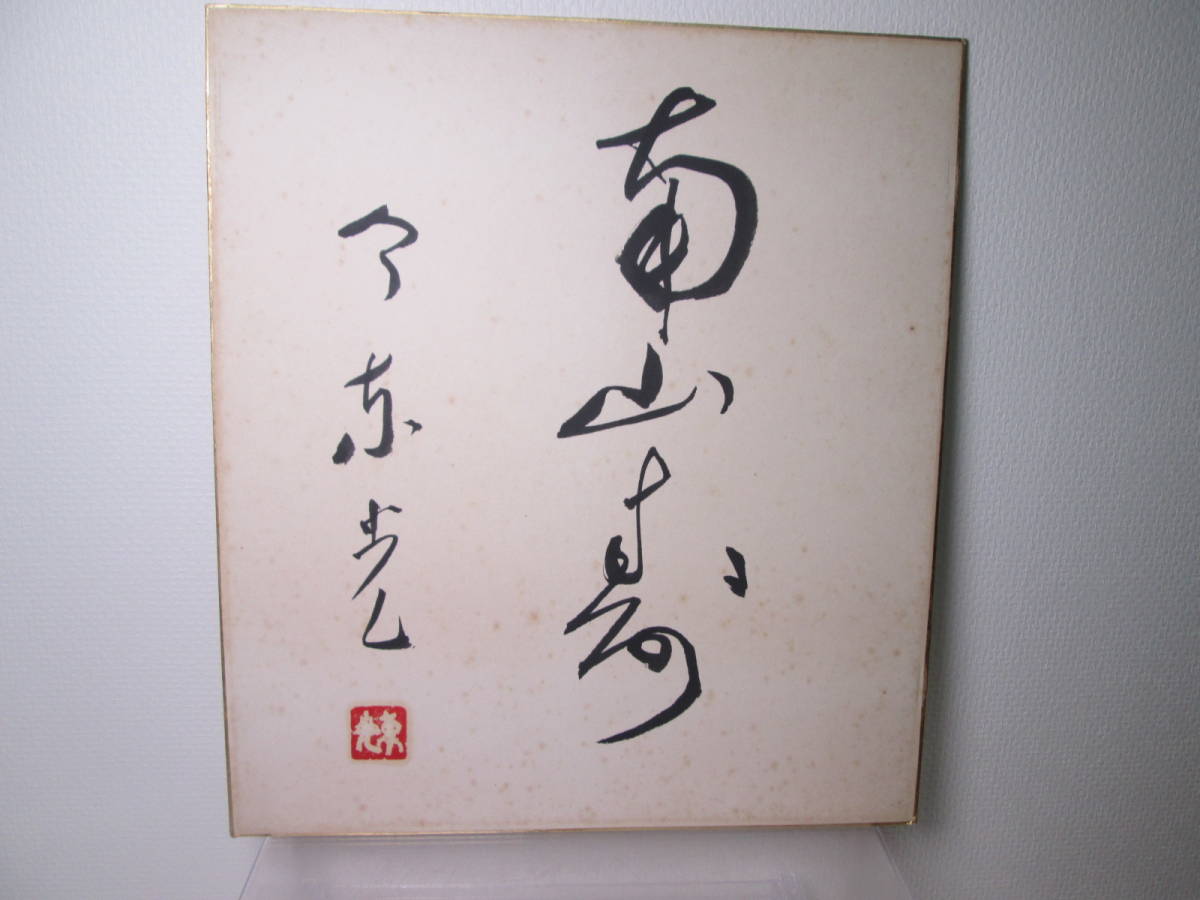 南山寿
今東光
東光